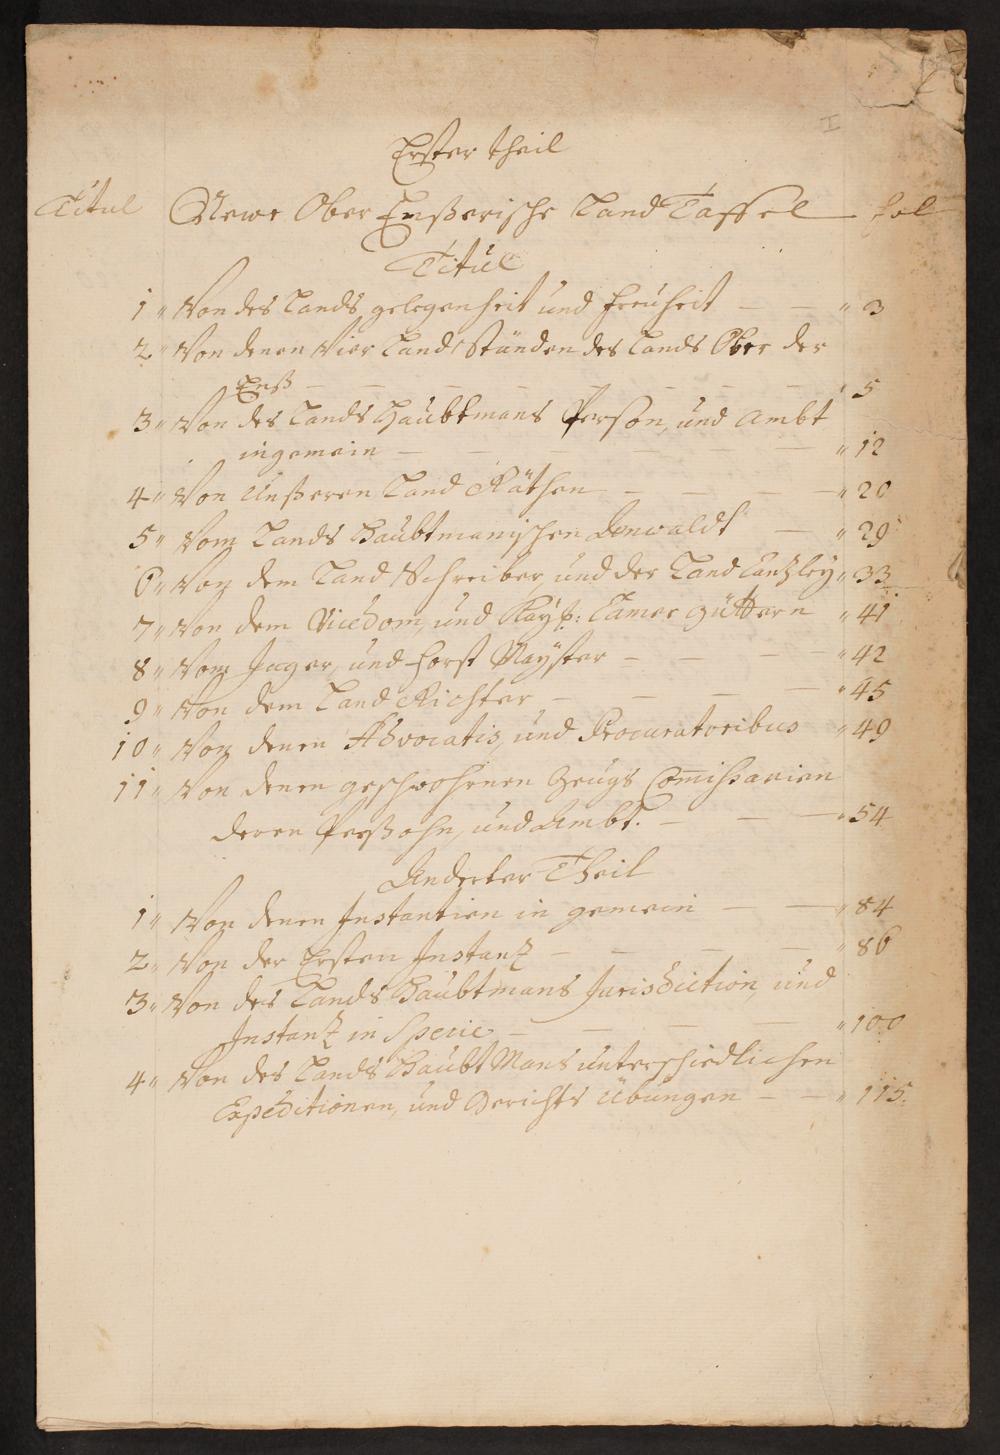 I
Erster theil
Titul Newe Ober Enßerische Land Taffel fol
Titul
1 Von des Lands gelegenheit und freyheit — — " 3
2 Von denen Vier Landt Ständen des Lands Ober der
Enß — — — — — — " 5
3 Von des Lands Haubtmans Person, und Ambt
ingemein — — — — — " 12
4 Von Unßeren Land Räthen — — — — " 20
5 Vom Lands Haubtmanischen Anwaldt — " 29
6 Von dem Land Schreiber, und der Land Cantzley " 33
7 Von dem Vicedom, und Kayß: Camer güttern " 41
8 Vom Jäger, und forst Mayster — — — — " 42
9 Von dem Land Richter — — — — " 45
10 Von denen Advocatis, und Procuratoribus " 49
11 Von denen geschwohrnen Zeugs Com̄issarien
deren Perßohn, und Ambt. — — — " 54
Anderter Theil
1 Von denen Instantien in gemein — — " 84
2 Von der Ersten Instanz — — — — " 86
3 Von des Lands Haubtmans Jurisdiction, und
Instanz in Specie — — — — " 100
4 Von des Lands Haubt Mans unterschiedlichen
Expeditionen, und Gerichts Übungen — — " 115.